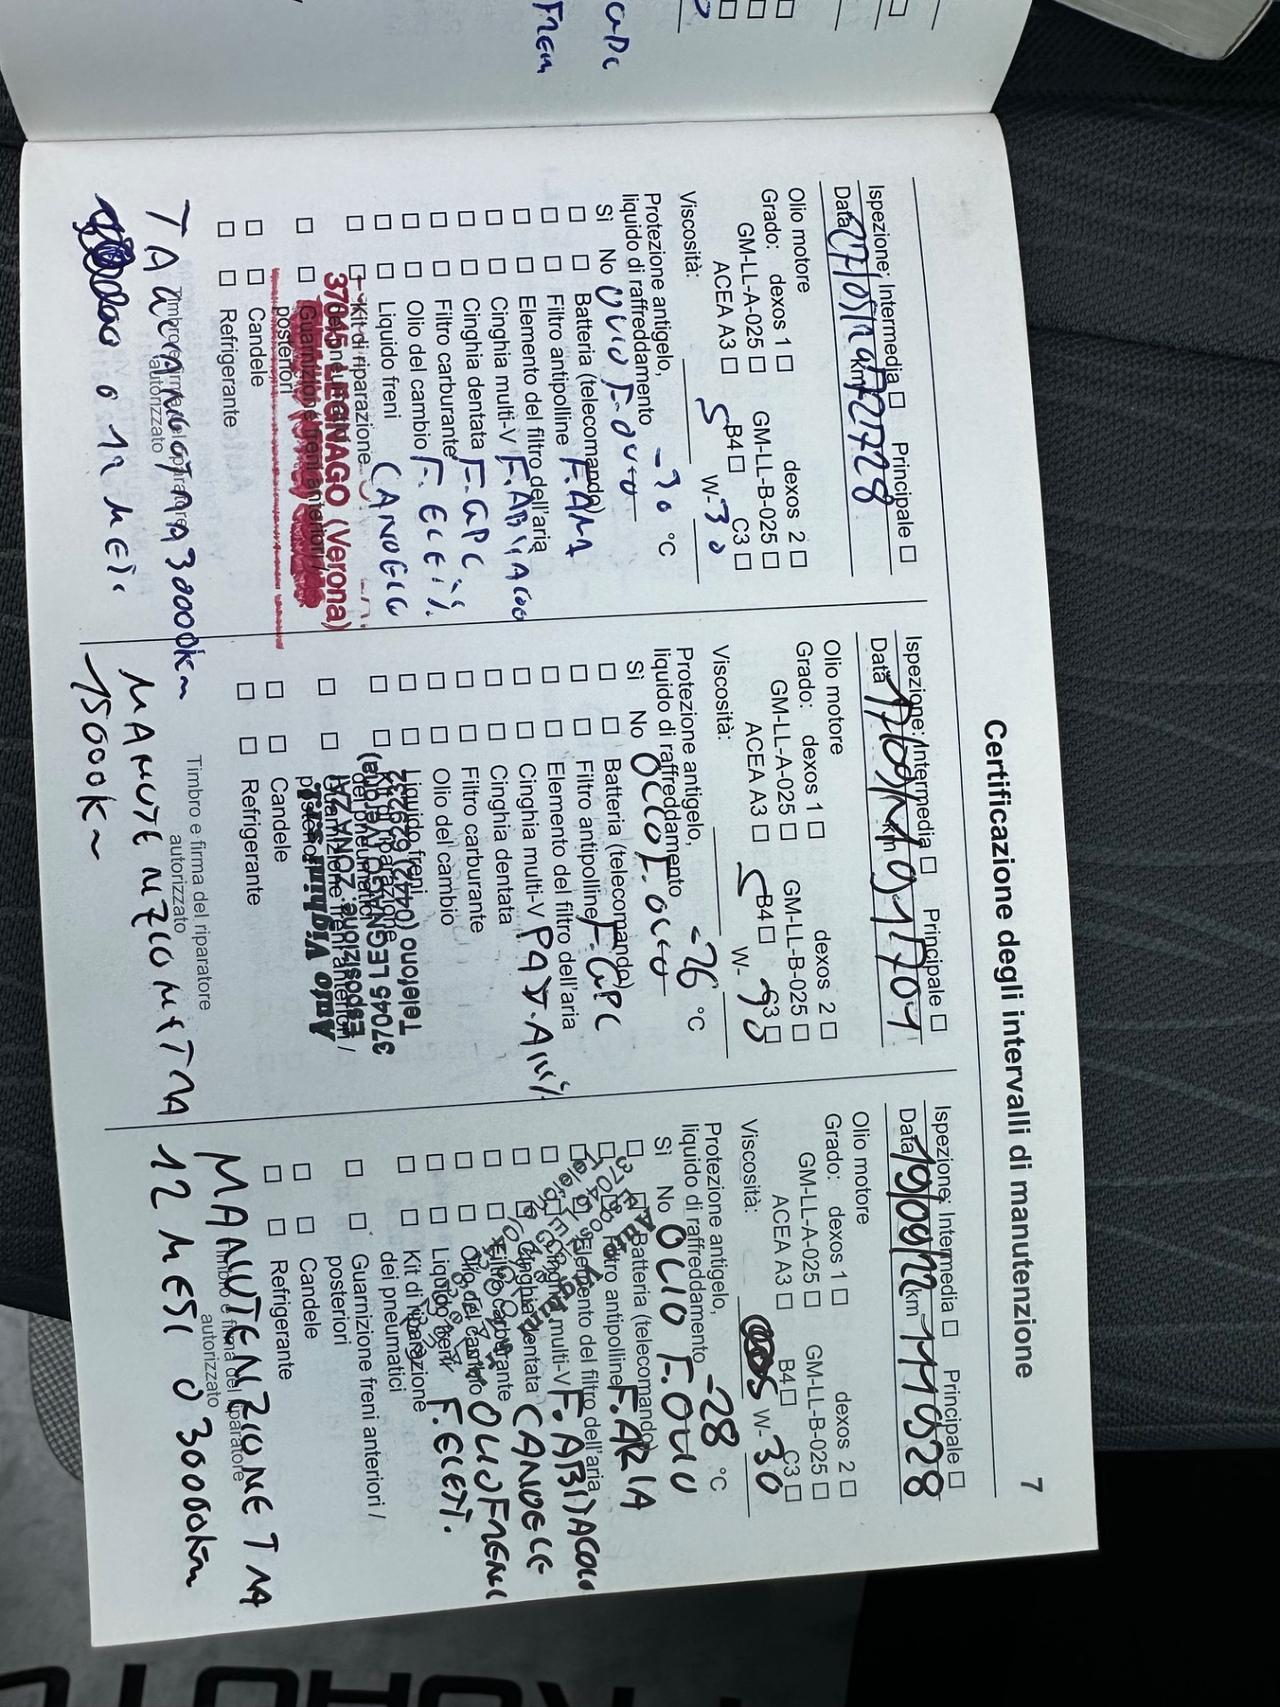 Certificazione degli intervalli di manutenzione
7
Ispezione: Intermedia □ Principale □
Data km 72728
Olio motore
Grado: dexos 1 □ dexos 2 □
GM-LL-A-025 □ GM-LL-B-025 □
ACEA A3 □ B4 □ C3 □
Viscosità: 5 W- 30
Protezione antigelo,
liquido di raffreddamento -30 °C
Sì No OLIO F. OLIO
□ □ Batteria (telecomando)
□ □ Filtro antipolline
□ □ Elemento del filtro dell'aria
□ □ Cinghia multi-V
□ □ Cinghia dentata F. GPC
□ □ Filtro carburante
□ □ Olio del cambio
□ □ Liquido freni CANDELE
□ □ Kit di riparazione
37045 LEGNAGO (Verona)
□ □ Guarnizione freni anteriori /
posteriori
□ □ Candele
□ □ Refrigerante
Timbro e firma del riparatore
autorizzato
30000km
o 12 MESI
Ispezione: Intermedia □ Principale □
Data km 91704
Olio motore
Grado: dexos 1 □ dexos 2 □
GM-LL-A-025 □ GM-LL-B-025 □
ACEA A3 □ B4 □ C3 □
Viscosità: 5 W-
Protezione antigelo,
liquido di raffreddamento -26 °C
Sì No OLIO F. OLIO
□ □ Batteria (telecomando) F. GPC
□ □ Filtro antipolline
□ □ Elemento del filtro dell'aria
□ □ Cinghia multi-V
□ □ Cinghia dentata
□ □ Filtro carburante
□ □ Olio del cambio
□ □ Liquido freni
□ □ Kit di riparazione
dei pneumatici
□ □ Guarnizione freni anteriori /
posteriori
Auto Vighini
Esposizione: ZONA ZAI
37045 LEGNAGO (Verona)
Telefono (0442) 629232
□ □ Candele
□ □ Refrigerante
Timbro e firma del riparatore
autorizzato
MANUTENZIONE TRA
15000km
Ispezione: Intermedia □ Principale □
Data 19/09/22 km 111028
Olio motore
Grado: dexos 1 □ dexos 2 □
GM-LL-A-025 □ GM-LL-B-025 □
ACEA A3 □ B4 □ C3 □
Viscosità: 5 W- 30
Protezione antigelo,
liquido di raffreddamento -28 °C
Sì No OLIO F. OLIO
□ □ Batteria (telecomando)
□ □ Filtro antipolline F. ARIA
□ □ Elemento del filtro dell'aria
□ □ Cinghia multi-V F. ABITACOLO
□ □ Cinghia dentata CANDELE
□ □ Filtro carburante
□ □ Olio del cambio OLIO FRENI
□ □ Liquido freni
□ □ Kit di riparazione
dei pneumatici
□ □ Guarnizione freni anteriori /
posteriori
□ □ Candele
□ □ Refrigerante
Timbro e firma del riparatore
autorizzato
MANUTENZIONE TRA
12 MESI O 30000km